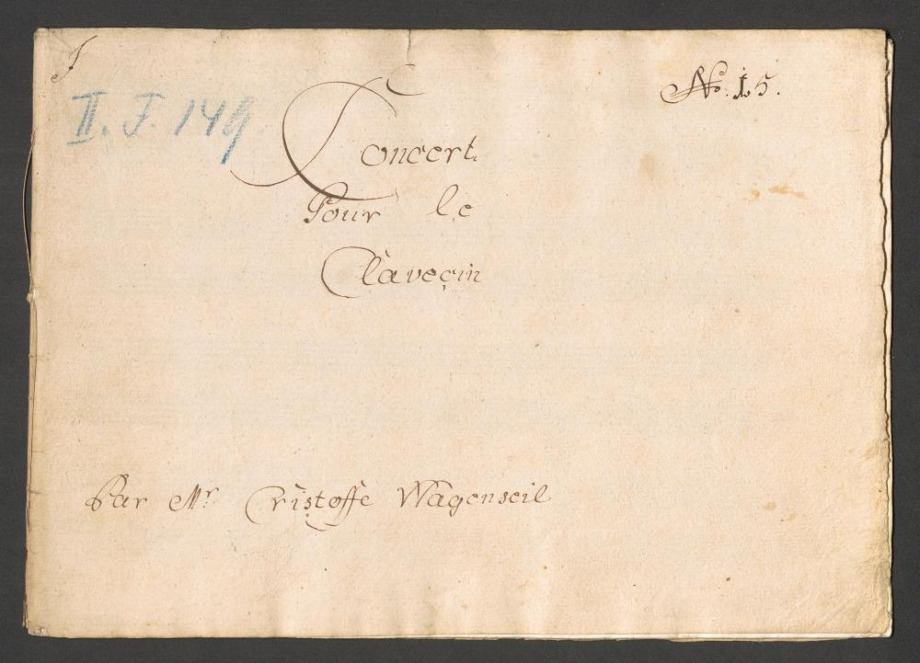 J
No. 15.
II. J. 149
Concert.
Pour le
Claveçin
Par Mr. Cristoffe Wagenseil